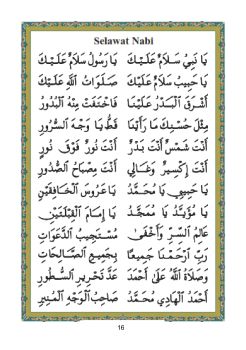 Selawat Nabi
يَا نَبِيْ سَلَامْ عَلَيْكَ يَا رَسُوْلْ سَلَامْ عَلَيْكَ
يَا حَبِيْبْ سَلَامْ عَلَيْكَ صَلَوَاتُ اللّٰهْ عَلَيْكَ
أَشْرَقَ الْبَدْرُ عَلَيْنَا فَاخْتَفَتْ مِنْهُ الْبُدُوْرُ
مِثْلَ حُسْنِكَ مَا رَأَيْنَا قَطُّ يَا وَجْهَ السُّرُوْرِ
أَنْتَ شَمْسٌ أَنْتَ بَدْرٌ أَنْتَ نُوْرٌ فَوْقَ نُوْرٍ
أَنْتَ إِكْسِيْرٌ وَغَالِي أَنْتَ مِصْبَاحُ الصُّدُوْرِ
يَا حَبِيْبِي يَا مُحَمَّدُ يَا عَرُوْسَ الْخَافِقَيْنِ
يَا مُؤَيَّدُ يَا مُمَجَّدُ يَا إِمَامَ الْقِبْلَتَيْنِ
عَالِمُ السِّرِّ وَأَخْفَى مُسْتَجِيْبُ الدَّعَوَاتِ
رَبِّ ارْحَمْنَا جَمِيْعًا بِجَمِيْعِ الصَّالِحَاتِ
وَصَلَاةُ اللّٰهْ عَلَى أَحْمَدَ عَدَّ تَحْرِيْرِ السُّطُوْرِ
أَحْمَدُ الْهَادِي مُحَمَّدُ صَاحِبُ الْوَجْهِ الْمُنِيْرِ
16